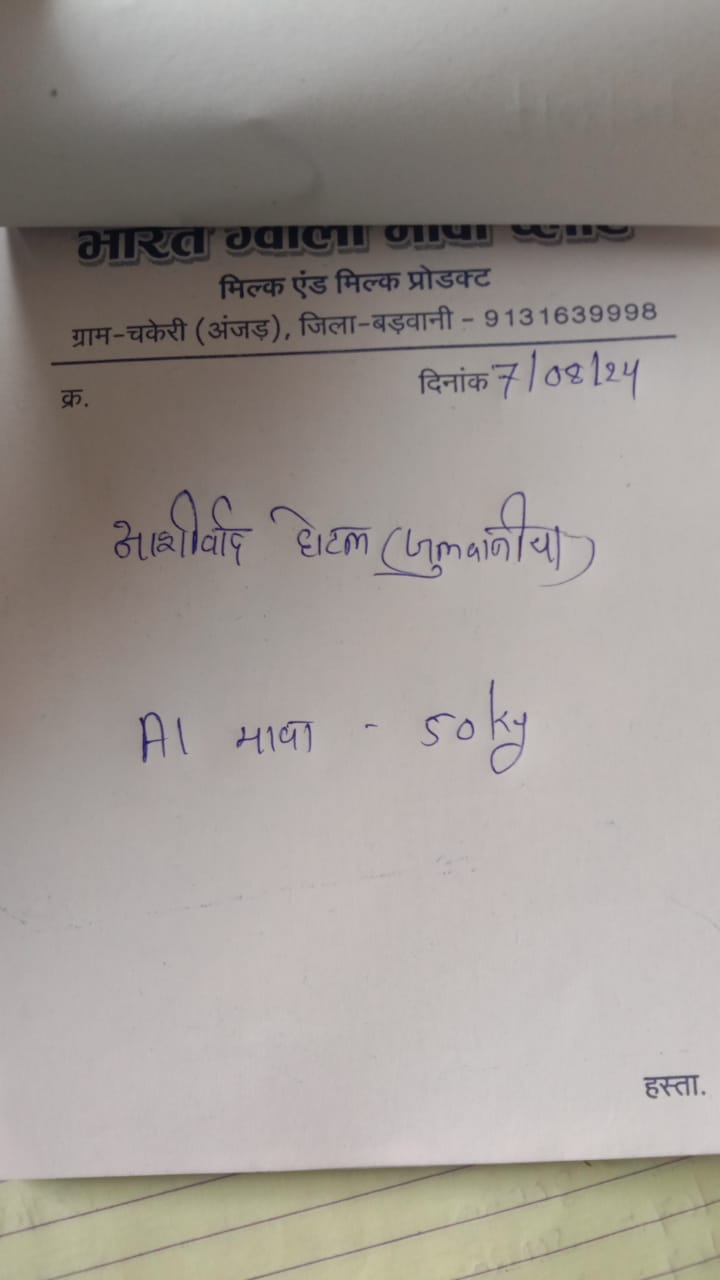 भारत ग्वाला मावा प्लांट
मिल्क एंड मिल्क प्रोडक्ट
ग्राम-चकेरी (अंजड़), जिला-बड़वानी - 9131639998
क्र. दिनांक 7/08/24
आशीर्वाद होटल (जुलवानीया)
A1 मावा - 50kg
हस्ता.